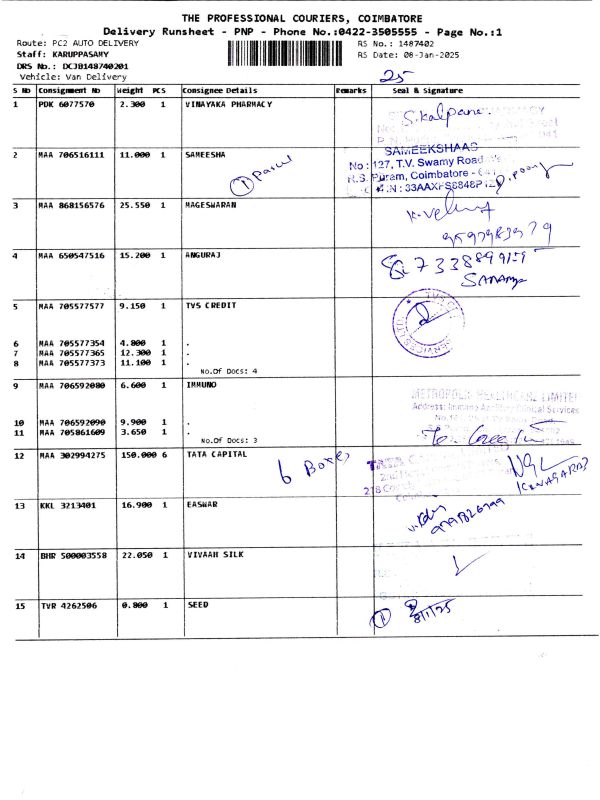 THE PROFESSIONAL COURIERS, COIMBATORE
Delivery Runsheet - PNP - Phone No.:0422-3505555 - Page No.:1
Route: PC2 AUTO DELIVERY
RS No.: 1487402
Staff: KARUPPASAMY
RS Date: 08-Jan-2025
DRS No.: DCJB148740201
Vehicle: Van Delivery
25
S No Consignment No Weight PCS Consignee Details Remarks Seal & Signature
1 PDK 6077570 2.300 1 VINAYAKA PHARMACY
S.kalpane
2 MAA 706516111 11.000 1 SAMEESHA
1 Parcel
SAMEEKSHAAS
No : 127, T.V. Swamy Road
R.S. Puram, Coimbatore -
3 MAA 868156576 25.550 1 MAGESWARAN
4 MAA 650547516 15.200 1 ANGURAJ
5 MAA 705577577 9.150 1 TVS CREDIT
6 MAA 705577354 4.800 1 .
7 MAA 705577365 12.300 1 .
8 MAA 705577373 11.100 1 .
No.Of Docs: 4
9 MAA 706592080 6.600 1 IMMUNO
METROPOLIS HEALTHCARE LIMITED
10 MAA 706592090 9.900 1 .
11 MAA 705861609 3.650 1 .
No.Of Docs: 3
12 MAA 302994275 150.000 6 TATA CAPITAL
6 Boxes
TATA
KANAGARAJ
13 KKL 3213401 16.900 1 EASWAR
14 BHR 500003558 22.050 1 VIVAAH SILK
15 TVR 4262506 0.800 1 SEED
8/1/25